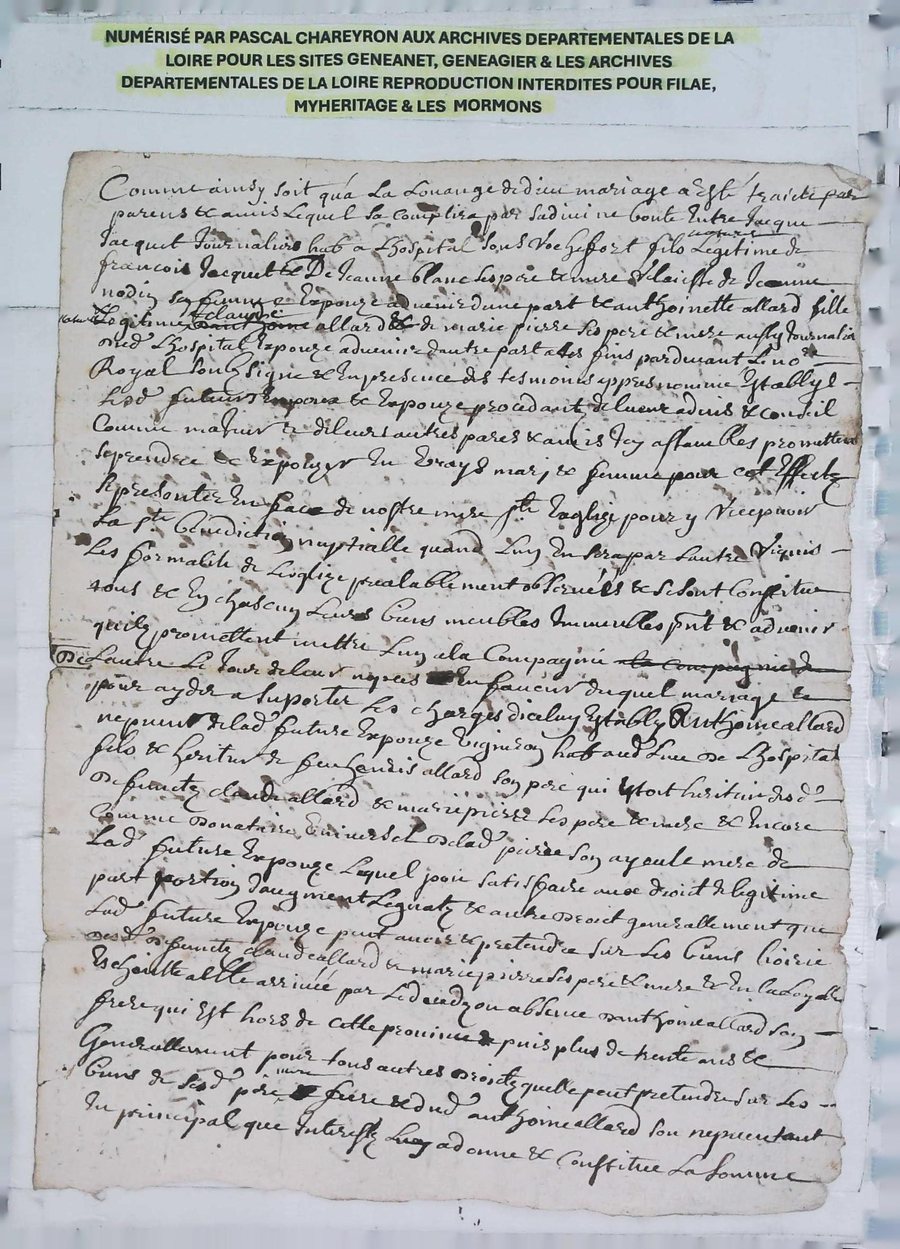 NUMÉRISÉ PAR PASCAL CHAREYRON AUX ARCHIVES DEPARTEMENTALES DE LA
LOIRE POUR LES SITES GENEANET, GENEAGIER & LES ARCHIVES
DEPARTEMENTALES DE LA LOIRE REPRODUCTION INTERDITES POUR FILAE,
MYHERITAGE & LES MORMONS
Comme ainsy soit qua La Louange de dieu mariage a Esté traicté par
parens & amis Lequel sa complira par sa divine bonté Entre Jacque
Jacquet Journalier hab a Lhospital sous Rochefort filz Legitime &
naturel
francois Jacquet & De Jeanne blanc ses pere & mere & de Jeanne
nodin sa femme Expouze advenir dune part & anthoinette allard fille
naturelle Legitime claude allard & de marie pierre ses pere & mere aussy Journalier
dud Lhospital Expouze advenir dautre part a ces fins pardevant Le no.re
Royal Soubsigné & En presence des tesmoins appres nommé Establys
Lesd futur Expoux & Expouze procedant de Leurs advis & conseil
Comme majeur & de leurs autres parens & amis Icy assamblés promettent
se prendre & Expouzer En vrays mary & femme pour cet Effect
se presenter En face de nostre mere s.te Esglize pour y Recepvoir
La s.te benediction nuptialle quand Luy En sera par Lautre Requis
Les formalité de Lesglize prealablement observéés & se sont Constitue
tous & En chascun Leurs biens meubles Immeubles p.nt & advenir
quilz promettent mettre Luy a la Compagnie la compagnie de
De Lautre Le Jour de leur nopces En faveur duquel mariage &
pour ayder a suporter Les charges diceluy Estably Anthoine allard
nepveur de lad future Expouze vigneron hab aud Lieu de Lhospital
filz & heritier de feu Jandis allard son pere qui Estoit heritier desd
defunctz claude allard & marie pierre ses pere & mere & Encore
Comme donataire Universel de lad pierre son ayeule mere de
Lad future Expouze Lequel pour satisfaire aux droit de legitime
part portion daugment Legatz & autre droit generallement que
Lad future Expouze peut avoir & pretendre sur Les biens hoirie
desd defunctz claude allard & marie pierre ses pere & mere & En la Loyalle
Escheutte a Elle arrivéé par Le absence danthoine allard son
frere qui Est hors de cette province depuis plus de trente ans &
Generallement pour tous autres droitz quelle peut pretendre sur Les
biens de sesd pere mere & frere & dud anthoine allard son nepveu tant
En principal que Interestz Luy a donne & Constitue La somme